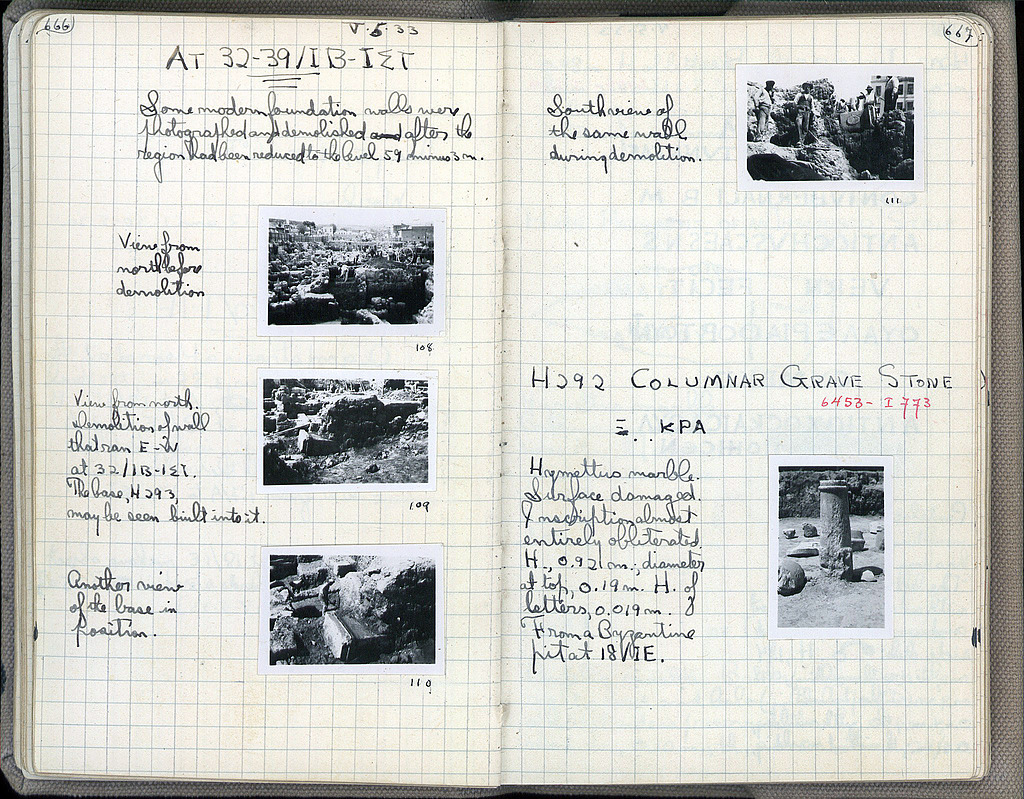 666
V·5·33
AT 32-39/IB-IΣT
Some modern foundation walls were
photographed and demolished after the
region had been reduced to the level 59 minus 3 m.
View from
north before
demolition
108
View from north.
Demolition of wall
that ran E-W
at 32/IB-IΣT.
The base, H293,
may be seen built into it.
109
Another view
of the base in
position.
110
667
South view of
the same wall
during demolition.
111
H292 COLUMNAR GRAVE STONE
6453- I 773
Ξ..ΚΡΑ
Hymettus marble.
Surface damaged.
Inscription almost
entirely obliterated.
H., 0.921 m.; diameter
at top, 0.19 m. H. of
letters, 0.019 m.
From a Byzantine
pit at 18/ΙΕ.